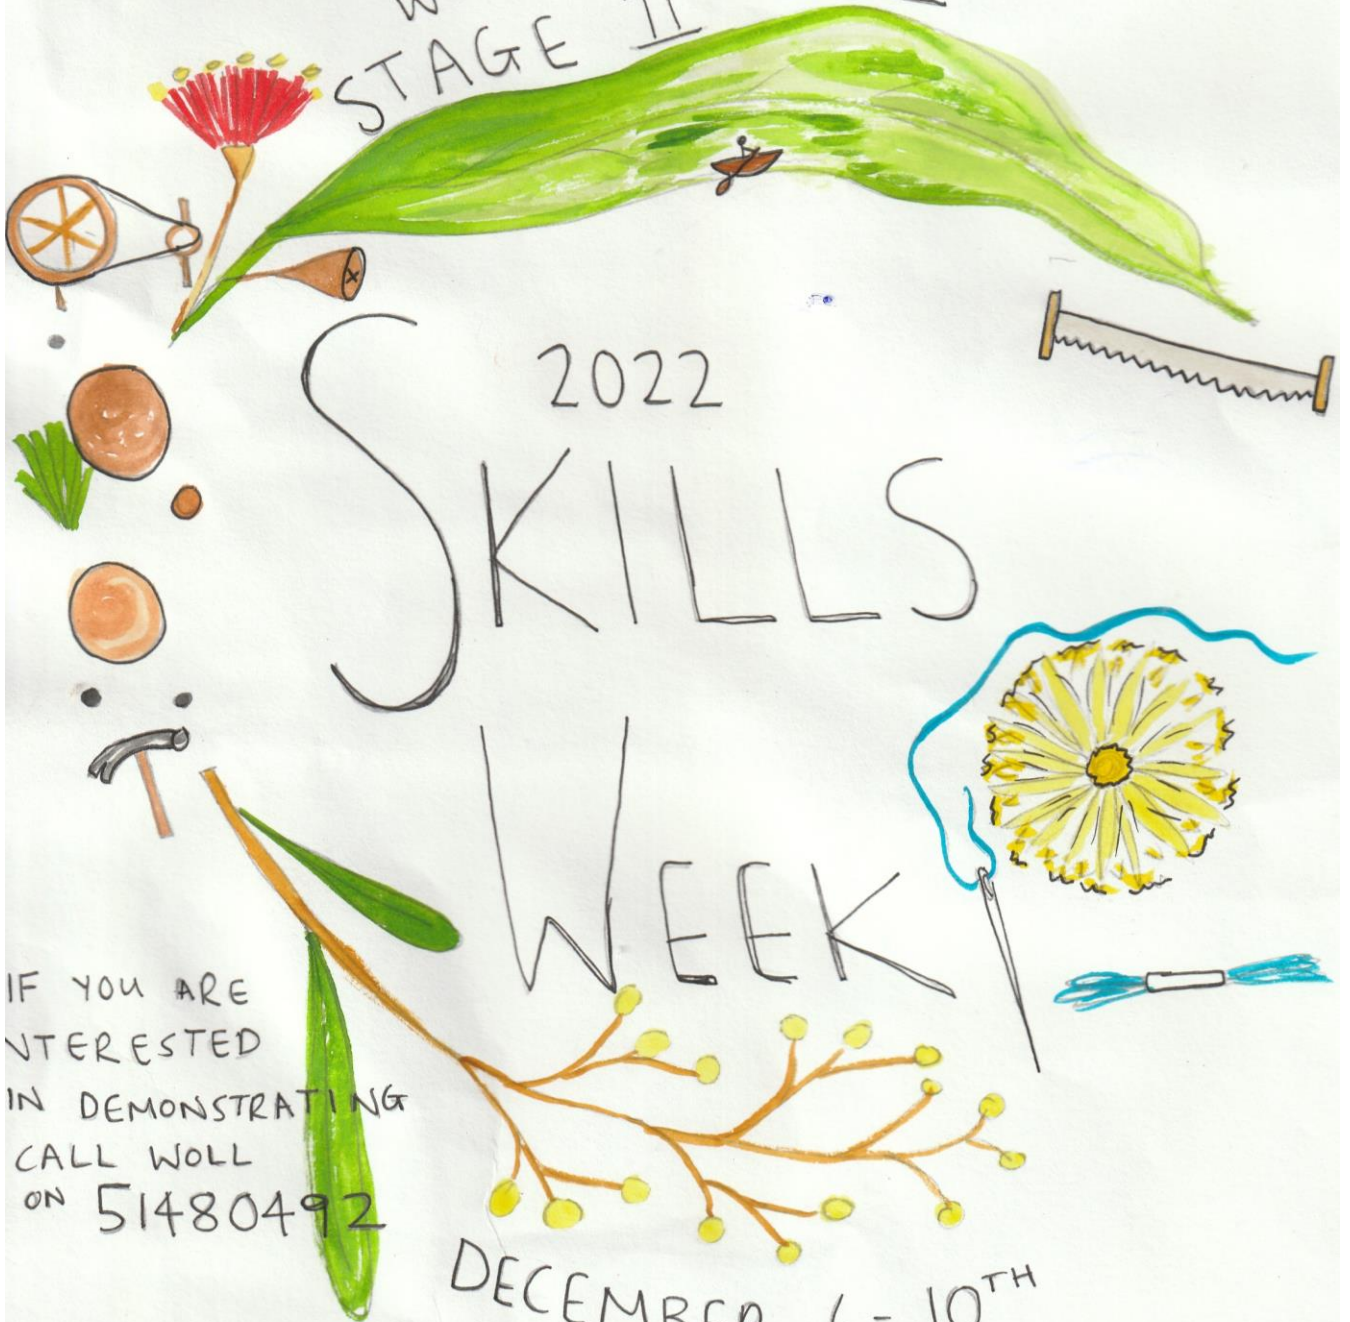 STAGE II
2022
SKILLS
WEEK
IF YOU ARE
NTERESTED
IN DEMONSTRATING
CALL WOLL
ON 51480492
DECEMBER - 10TH